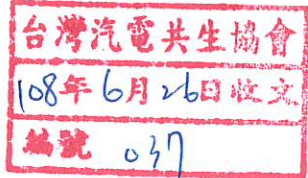 台灣汽電共生協會
108年6月26日收文
編號 037